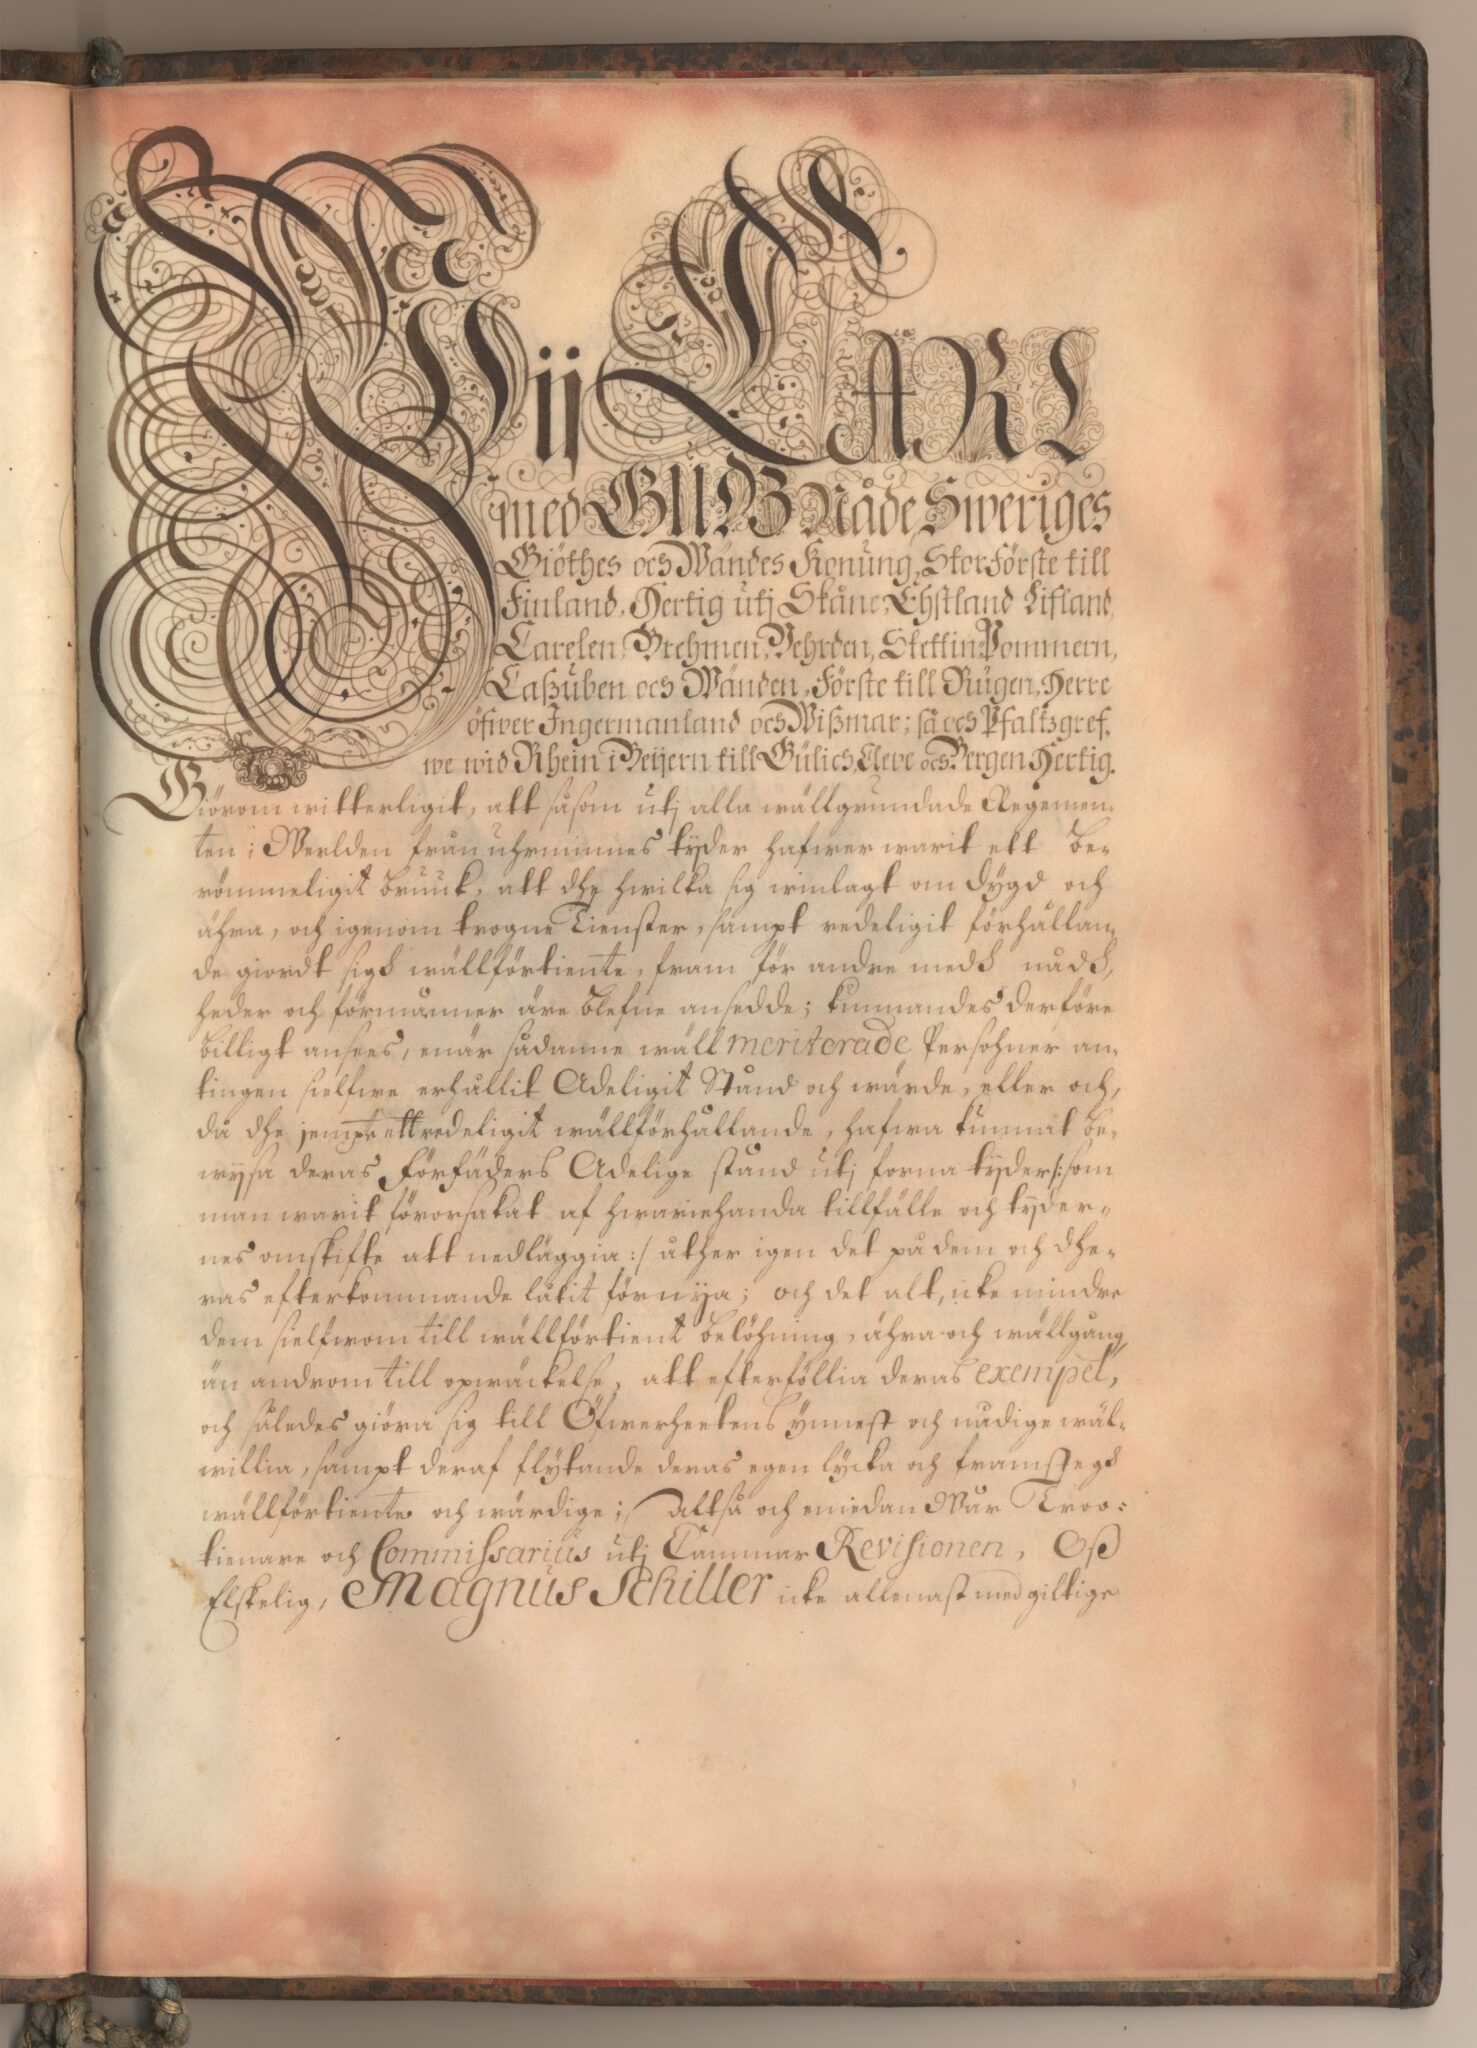 Wij CARL
med GUDZ Nåde, Sweriges
Giöthes och Wändes Konung, StorFörste till
Finland, Hertig utj Skåne, Ehstland Lifland,
Carelen, Brehmen, Vehrden, Stettin, Pommern,
Caßuben och Wänden, Förste till Rügen, Herre
öfwer Ingermanland och Wißmar; så och Pfaltzgref-
we wid Rhein i Beijern till Gülich, Cleve och Bergen Hertig.
Giörom witterligit, att såsom utj alla wällgrundade Regemen-
ten i Werlden från uhrminnes tijder hafwer warit ett be-
römmeligit bruuk, att dhe hwilka sig winlagt om dygd och
ähra, och igenom trogne Tienster, sampt redeligit förhållan-
de giordt sigh wällförtiente, fram för andre medh nådh,
heder och förmåner äre blefne ansedde; kunnandes derföre
billigt ansees, enär sådanne wäll meriterade Persohner an-
tingen sielfwe erhållit Adeligit Stånd och wärde, eller och,
då dhe jempte ett redeligit wällförhållande, hafwa kunnat be-
wijsa deras Förfäders Adelige stånd utj forna tijder /: som
man warit förorsakat af hwariehanda tillfälle och tijder-
nes omskifte att nedläggia :/ åther igen det på dem och dhe-
ras efterkommande låtit förnya; och det alt, icke mindre
dem sielfwom till wällförtient belöhning, ähra och wällgång,
än androm till opwäckelse, att efterföllia deras exempel,
och således giöra sig till Öfwerheetens ynnest och nådige wäl-
willia, sampt deraf flytande deras egen lycka och framstegh
wällförtiente och wärdige; Altså och emedan Wår Troo-
tienare och Commissarius utj Cammar Revisionen, Oß
Elskelig, Magnus Schiller icke allenast med giltige